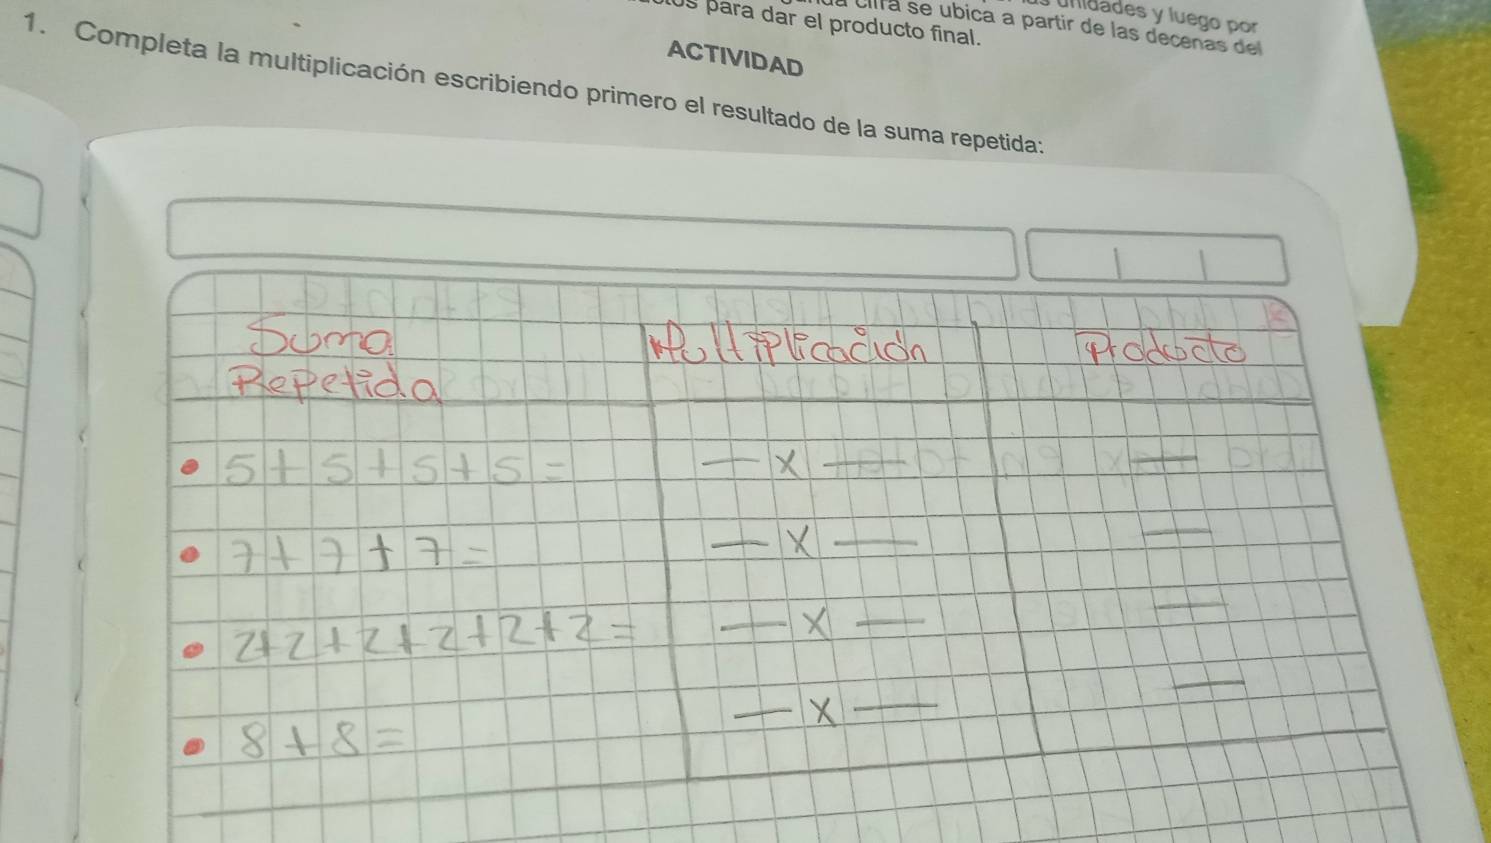 unidades y luego por
cifra se ubica a partir de las decenas del
para dar el producto final.
ACTIVIDAD
1. Completa la multiplicación escribiendo primero el resultado de la suma repetida:
Suma Multiplicación Producto
Repetida
• 5+5+5+5= __ x __ __
• 7+7+7= __ x __ __
• 2+2+2+2+2+2= __ x __ __
• 8+8= __ x __ __